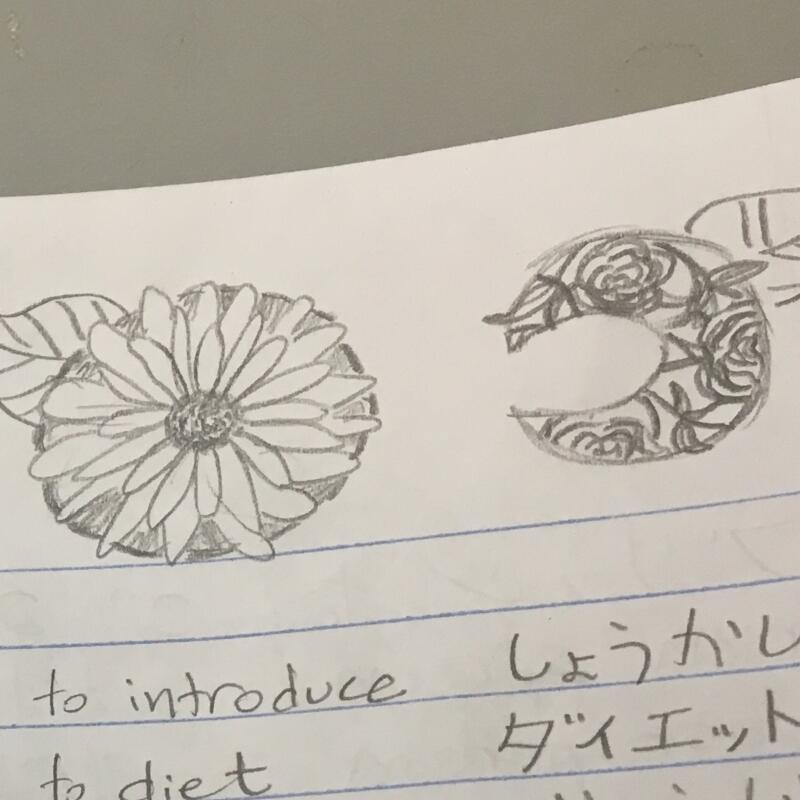 to introduce しょうかし
to diet ダイエット